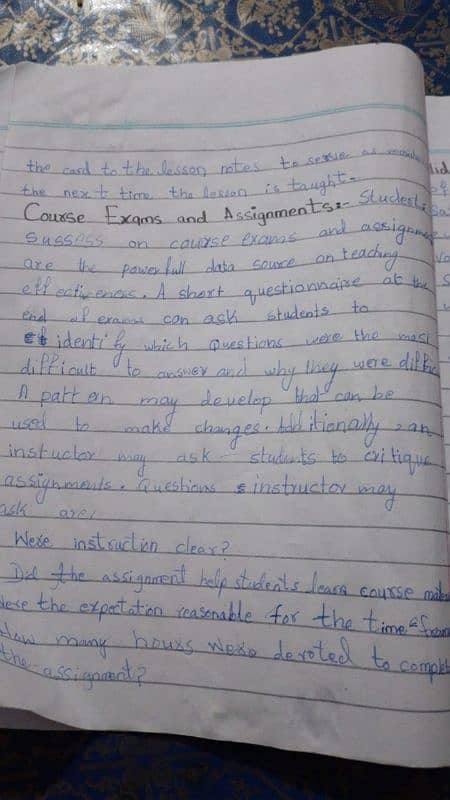 the card to the lesson notes to serve as
the next time the lesson is taught.
Course Exams and Assignments:- Student
Sussess on course exams and assignme
are the powerfull data source on teaching
effectiveness. A short questionnaire at the
end of exams can ask students to
identify which Questions were the most
difficult to answer and why they were diffic
A patteren may develop that can be
used to make changes. Additionally, an
instuctor may ask students to critique
assignments. Questions instructor may
ask are,
Were instruction clear?
Did the assignment help students learn course mate
Were the expectation reasonable for the time-fram
How many hours were devoted to complet
the assignment?